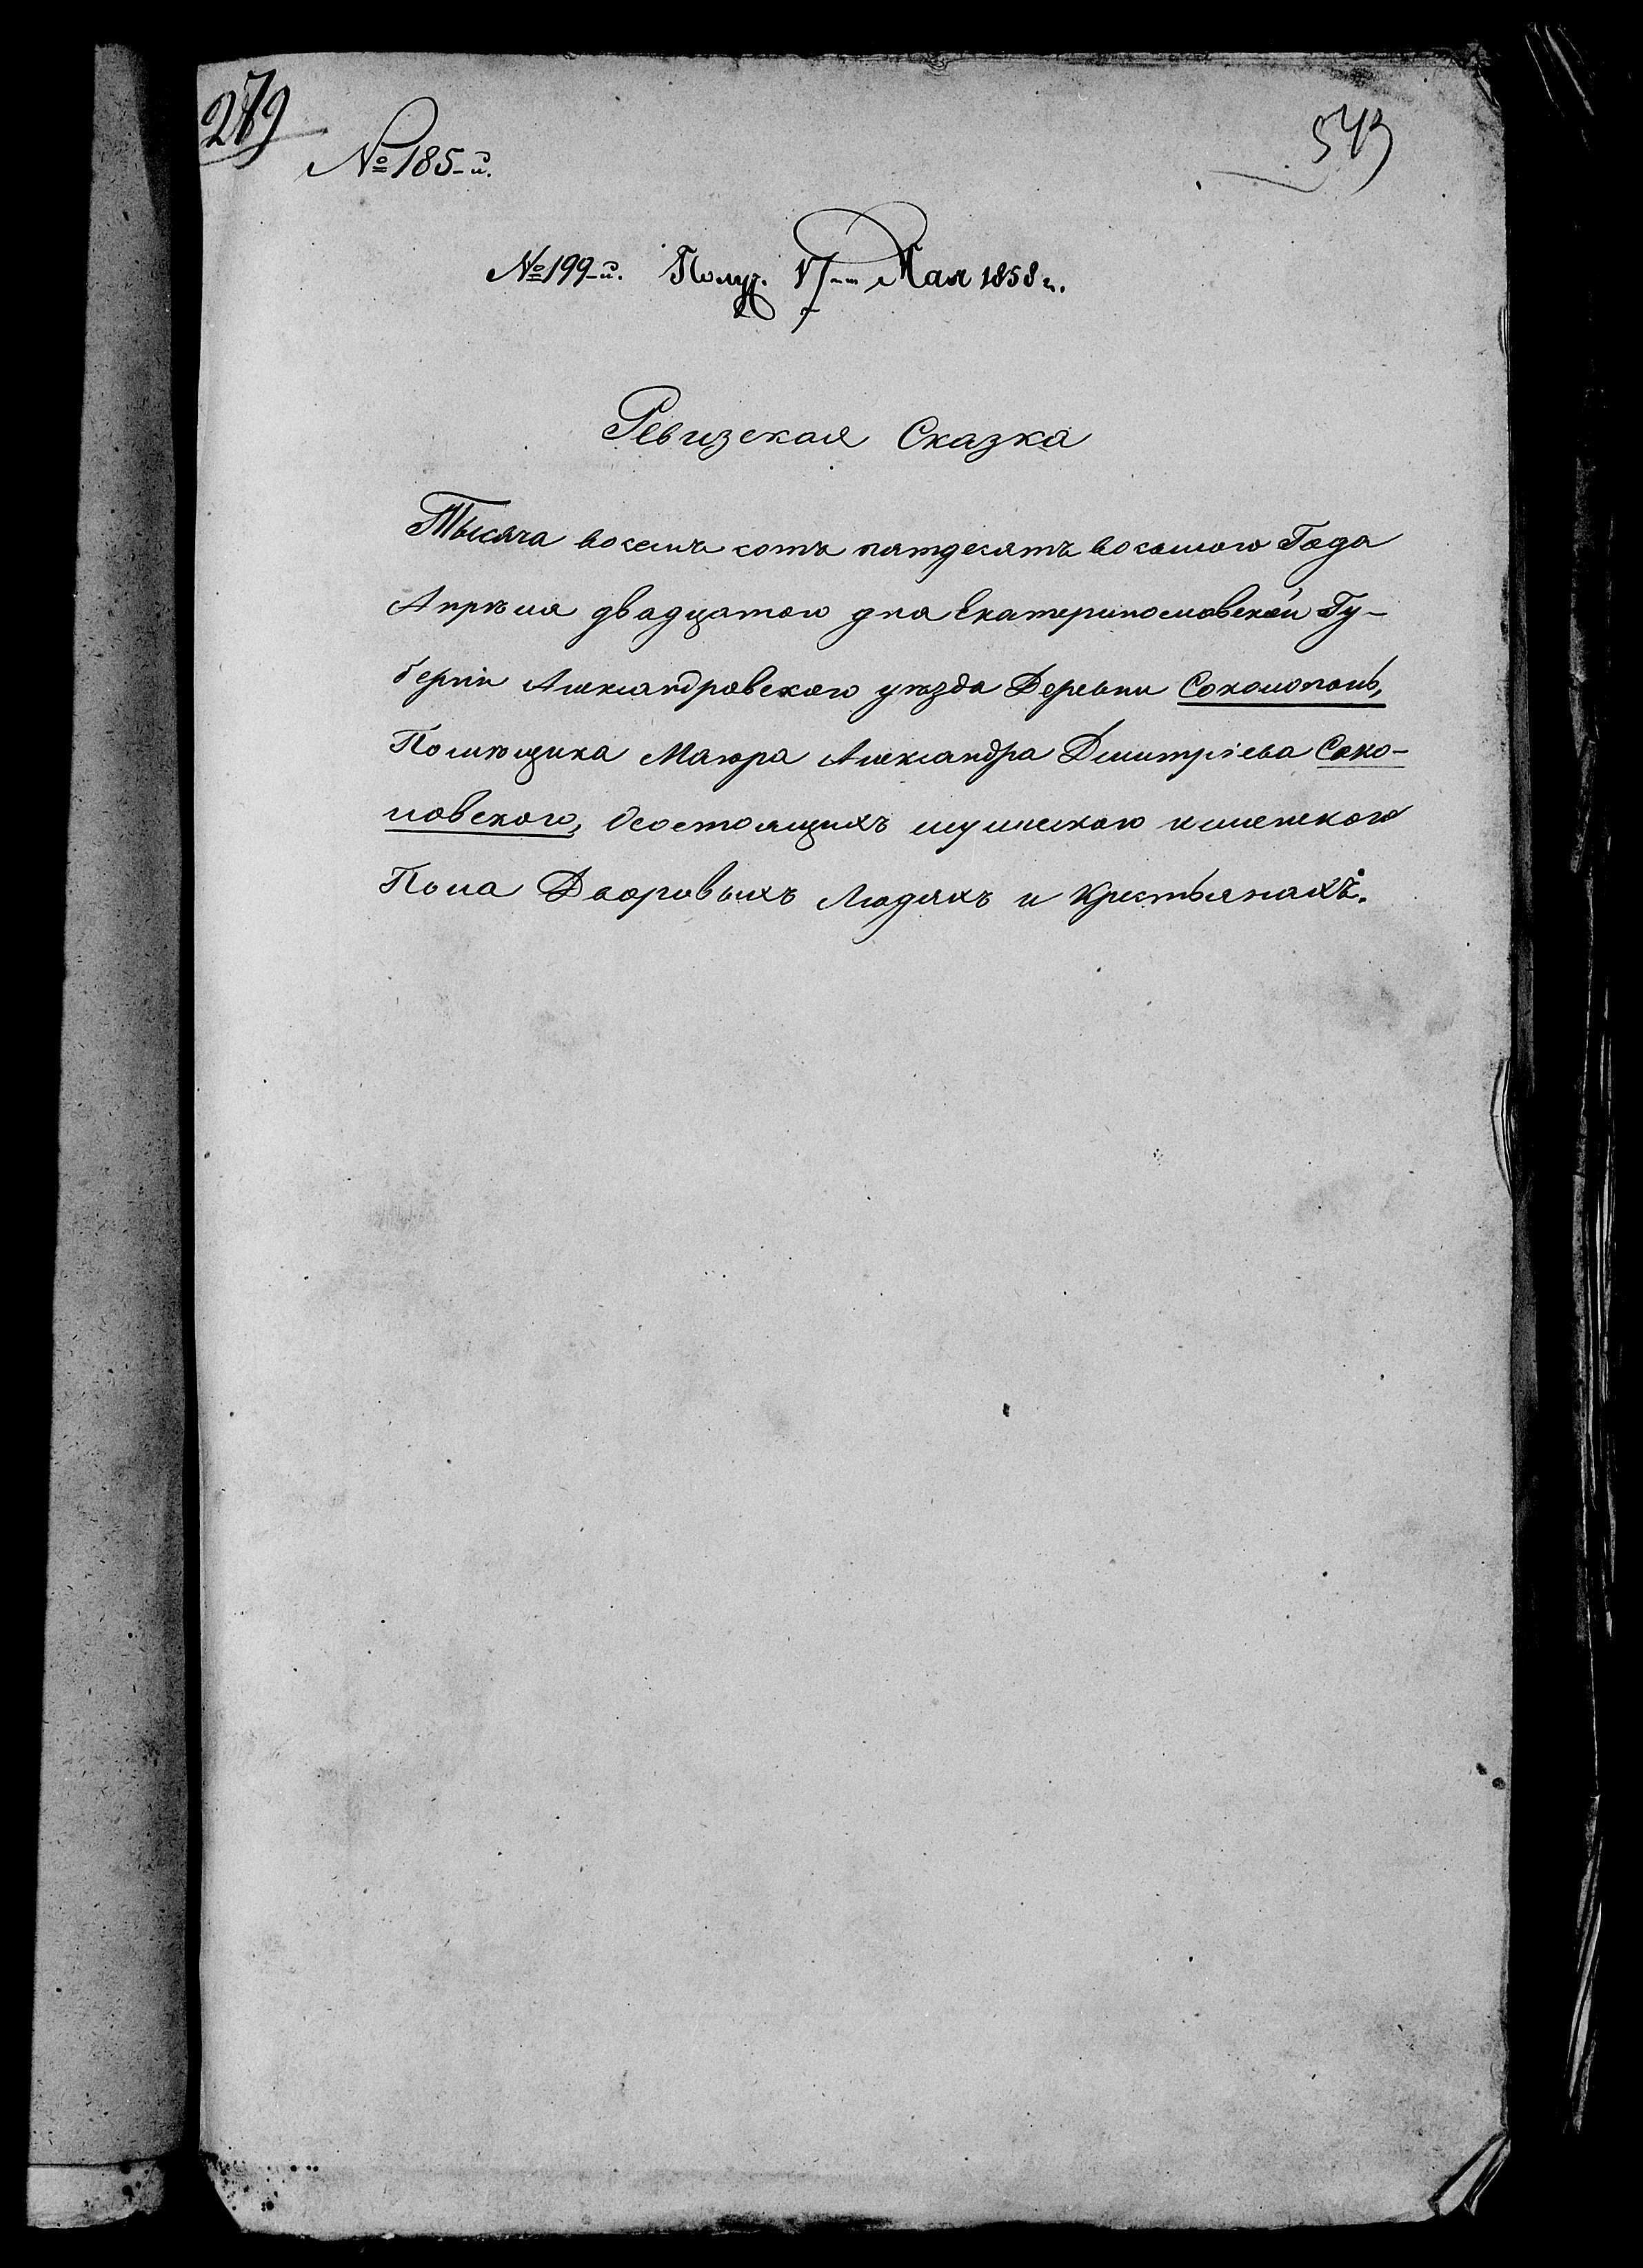 279
543
№ 185-й.
№ 199-й. Получ. 17 Мая 1858 г.
Ревизская Сказка
Тысяча восемъ сотъ пятдесятъ восьмого Года
Апрѣля двадцатого дня Екатеринославской Гу-
берніи Александровского уѣзда Деревни
Помѣщика Маіора Александра Дмитріева Соко-
ловского, Осостоящихъ мужеского и женского
Пола Дворовыхъ Людяхъ и Крестьянахъ.